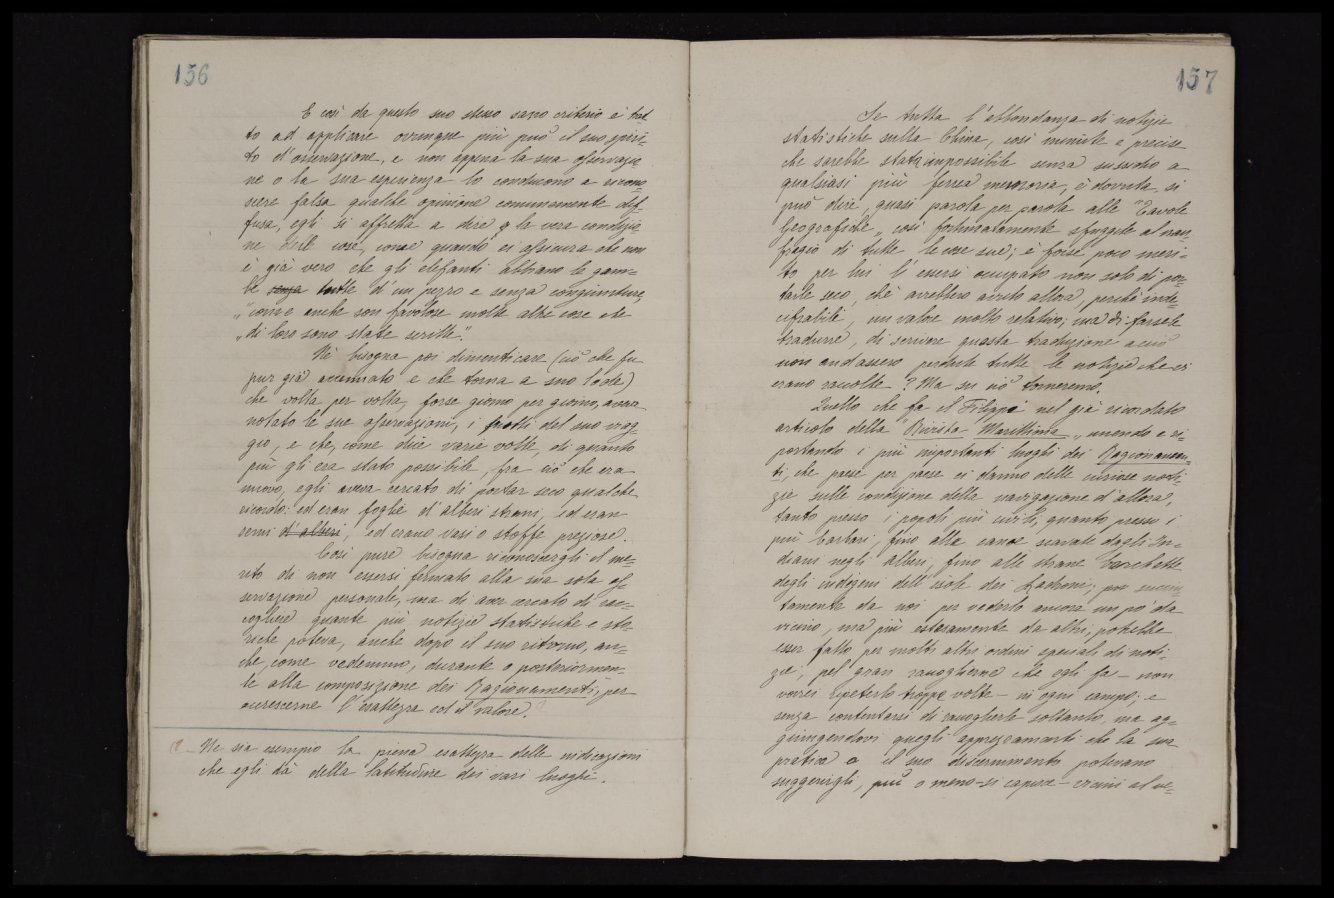 156
E così da questo suo stesso sano criterio è trat-
to ad applicare ovunque più può il suo spiri-
to d'osservazione, e non appena la sua osservazio
ne o la sua esperienza lo conducono a ricono-
scere falsa qualche opinione comunemente dif-
fusa, egli si affretta a dire la vera condizio
ne delle cose, come quando ci assicura che non
è già vero che gli elefanti abbiano le gam-
be senza tutte d'un pezzo e senza congiunture,
"come anche son favolose molte altre cose che
"di loro sono state scritte".
Nè bisogna poi dimenticare (ciò che fu
pur già accennato e che torna a suo lode)
che volta per volta, forse giorno per giorno, avea
notato le sue osservazioni, i frutti del suo viag-
gio, e che, come dice varie volte, di quanto
più gli era stato possibile, fra ciò che era
nuovo, egli aveva cercato di portar seco qualche
ricordo: ed eran foglie d'alberi strani, ed eran
semi d'alberi, ed erano vasi o stoffe preziose.
Così pure bisogna riconoscergli il me-
rito di non essersi fermato alla sua sola os-
servazione personale, ma di aver cercato di rac-
cogliere quante più notizie statistiche e sto-
riche poteva, anche dopo il suo ritorno, an-
che, come vedemmo, durante o posteriormen-
te alla composizione dei Ragionamenti, per
accrescerne l'esattezza ed il valore.
Ne sia esempio la piena esattezza delle indicazioni
che egli dà della latitudine dei vari luoghi.
157
Se tutta l'abbondanza di notizie
statistiche sulla China, così minute e precise
che sarebbe stata impossibile senza sussidio a
qualsiasi più ferrea memoria, è dovuta, si
può dire, quasi parola per parola alle "Tavole
Geografiche" così fortunatamente sfuggite al nau-
fragio di tutte le cose sue; è forse poco meri-
to per lui l'essersi occupato non solo di por-
tarle seco, chè avrebbero avuto allora, perchè inde-
cifrabili, un valore molto relativo; ma di farsele
tradurre, di scrivere questa traduzione acciò
non andassero perdute tutte le notizie che vi
erano raccolte? Ma su ciò torneremo.
Quello che fa il Filippi nel già ricordato
articolo della "Rivista Marittima" unendo e ri-
portando i più importanti luoghi dei Ragionamen-
ti, che paese per paese ci danno delle curiose noti-
zie sulle condizione della navigazione d'allora,
tanto presso i popoli più civili, quanto presso i
più barbari, fino alle canoe scavate dagli In-
diani negli alberi, fino alle strane barchette
degli indigeni dell'isole dei Ladroni; pur succin-
tamente da noi per vederlo ancora un po' da
vicino, ma più estesamente da altri, potrebbe
esser fatto per molti altri ordini speciali di noti-
zie, pel gran raccoglierne che egli fa - non
vorrei ripeterlo troppe volte - in ogni campo; e
senza contentarsi di raccoglierle soltanto, ma ag-
giungendovi quegli apprezzamenti che la sua
pratica o il suo discernimento potevano
suggerirgli, più o meno - si capisce - vicini al ve-